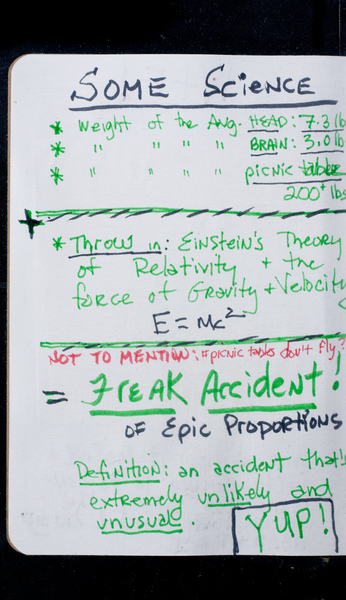 SOME SCIENCE
* Weight of the Avg. HEAD: 7.3 lb
* " " " " BRAIN: 3.0 lb
* " " " " picnic table
200+ lbs
+
* Throw in: Einstein's Theory
of Relativity + the
force of Gravity + Velocity
E = MC²
NOT TO MENTION: #picnic tables don't fly?
= FREAK ACCIDENT!
OF Epic PROPORTIONS
Definition: an accident that's
extremely unlikely and
unusual.
YUP!